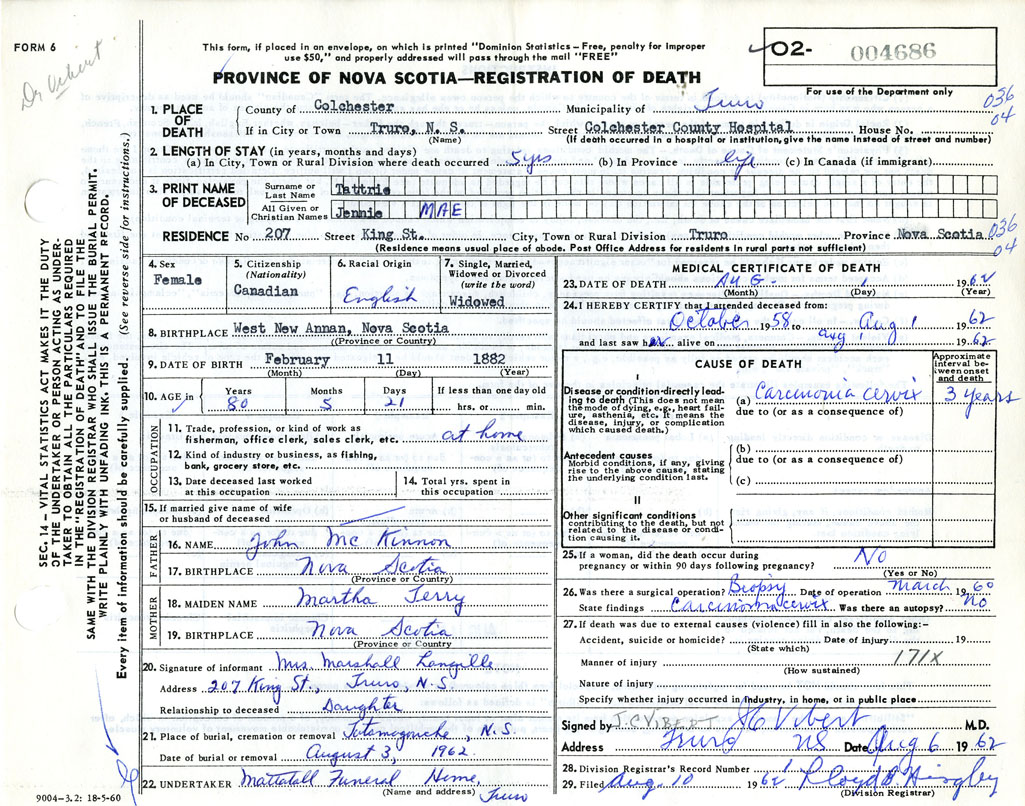 FORM 6
Dr Vibert
This form, if placed in an envelope, on which is printed "Dominion Statistics – Free, penalty for improper
use $50," and properly addressed will pass through the mail "FREE"
PROVINCE OF NOVA SCOTIA—REGISTRATION OF DEATH
02- 004686
For use of the Department only
036
04
1. PLACE OF DEATH
County of Colchester Municipality of Truro
If in City or Town Truro, N. S. Street Colchester County Hospital House No.
(Name) (If death occurred in a hospital or institution, give the name instead of street and number)
2. LENGTH OF STAY (in years, months and days)
(a) In City, Town or Rural Division where death occurred 5yrs (b) In Province life (c) In Canada (if immigrant)
3. PRINT NAME OF DECEASED
Surname or Last Name Tattrie
All Given or Christian Names Jennie MAE
RESIDENCE No 207 Street King St. City, Town or Rural Division Truro Province Nova Scotia
036
04
(Residence means usual place of abode. Post Office Address for residents in rural parts not sufficient)
4. Sex
Female
5. Citizenship
(Nationality)
Canadian
6. Racial Origin
English
7. Single, Married, Widowed or Divorced
(write the word)
Widowed
8. BIRTHPLACE West New Annan, Nova Scotia
(Province or Country)
9. DATE OF BIRTH February 11 1882
(Month) (Day) (Year)
10. AGE in Years 80 Months 5 Days 21 If less than one day old
hrs. or min.
OCCUPATION
11. Trade, profession, or kind of work as
fisherman, office clerk, sales clerk, etc. at home
12. Kind of industry or business, as fishing,
bank, grocery store, etc.
13. Date deceased last worked
at this occupation
14. Total yrs. spent in
this occupation
15. If married give name of wife
or husband of deceased
FATHER
16. NAME John McKinnon
17. BIRTHPLACE Nova Scotia
(Province or Country)
MOTHER
18. MAIDEN NAME Martha Terry
19. BIRTHPLACE Nova Scotia
(Province or Country)
20. Signature of informant Mrs. Marshall Langille
Address 207 King St., Truro, N.S.
Relationship to deceased Daughter
21. Place of burial, cremation or removal Tatamagouche, N.S.
Date of burial or removal August 3, 1962.
22. UNDERTAKER Mattatall Funeral Home,
(Name and address) Truro
9004-3.2: 18-5-60
MEDICAL CERTIFICATE OF DEATH
23. DATE OF DEATH AUG. 1 1962
(Month) (Day) (Year)
24. I HEREBY CERTIFY that I attended deceased from:
October 1958 to Aug 1 1962
and last saw her alive on aug 1 1962
CAUSE OF DEATH
Approximate interval between onset and death
I
Disease or condition directly leading to death (This does not mean
the mode of dying, e.g., heart failure, asthenia, etc. It means the
disease, injury, or complication
which caused death.)
(a) Carcinonia cervix 3 years
due to (or as a consequence of)
Antecedent causes
Morbid conditions, if any, giving
rise to the above cause, stating
the underlying condition last.
(b)
due to (or as a consequence of)
(c)
II
Other significant conditions
contributing to the death, but not
related to the disease or condition causing it.
25. If a woman, did the death occur during
pregnancy or within 90 days following pregnancy? No
(Yes or No)
26. Was there a surgical operation? Biopsy Date of operation March 1960
State findings Carcinoma cervix Was there an autopsy? No
27. If death was due to external causes (violence) fill in also the following:–
Accident, suicide or homicide? Date of injury 19
(State which)
Manner of injury 171X
(How sustained)
Nature of injury
Specify whether injury occurred in industry, in home, or in public place
Signed by J.C VIBERT JC Vibert M.D.
Address Truro NS Date Aug 6 1962
28. Division Registrar's Record Number
29. Filed Aug. 10 1962
(Division Registrar)
SEC. 14 – VITAL STATISTICS ACT MAKES IT THE DUTY
OF THE UNDERTAKER OR PERSON ACTING AS UNDERTAKER TO OBTAIN ALL THE PARTICULARS REQUIRED
IN THE "REGISTRATION OF DEATH" AND TO FILE THE
SAME WITH THE DIVISION REGISTRAR WHO SHALL ISSUE THE BURIAL PERMIT.
WRITE PLAINLY WITH UNFADING INK. THIS IS A PERMANENT RECORD.
Every item of information should be carefully supplied. (See reverse side for instructions.)